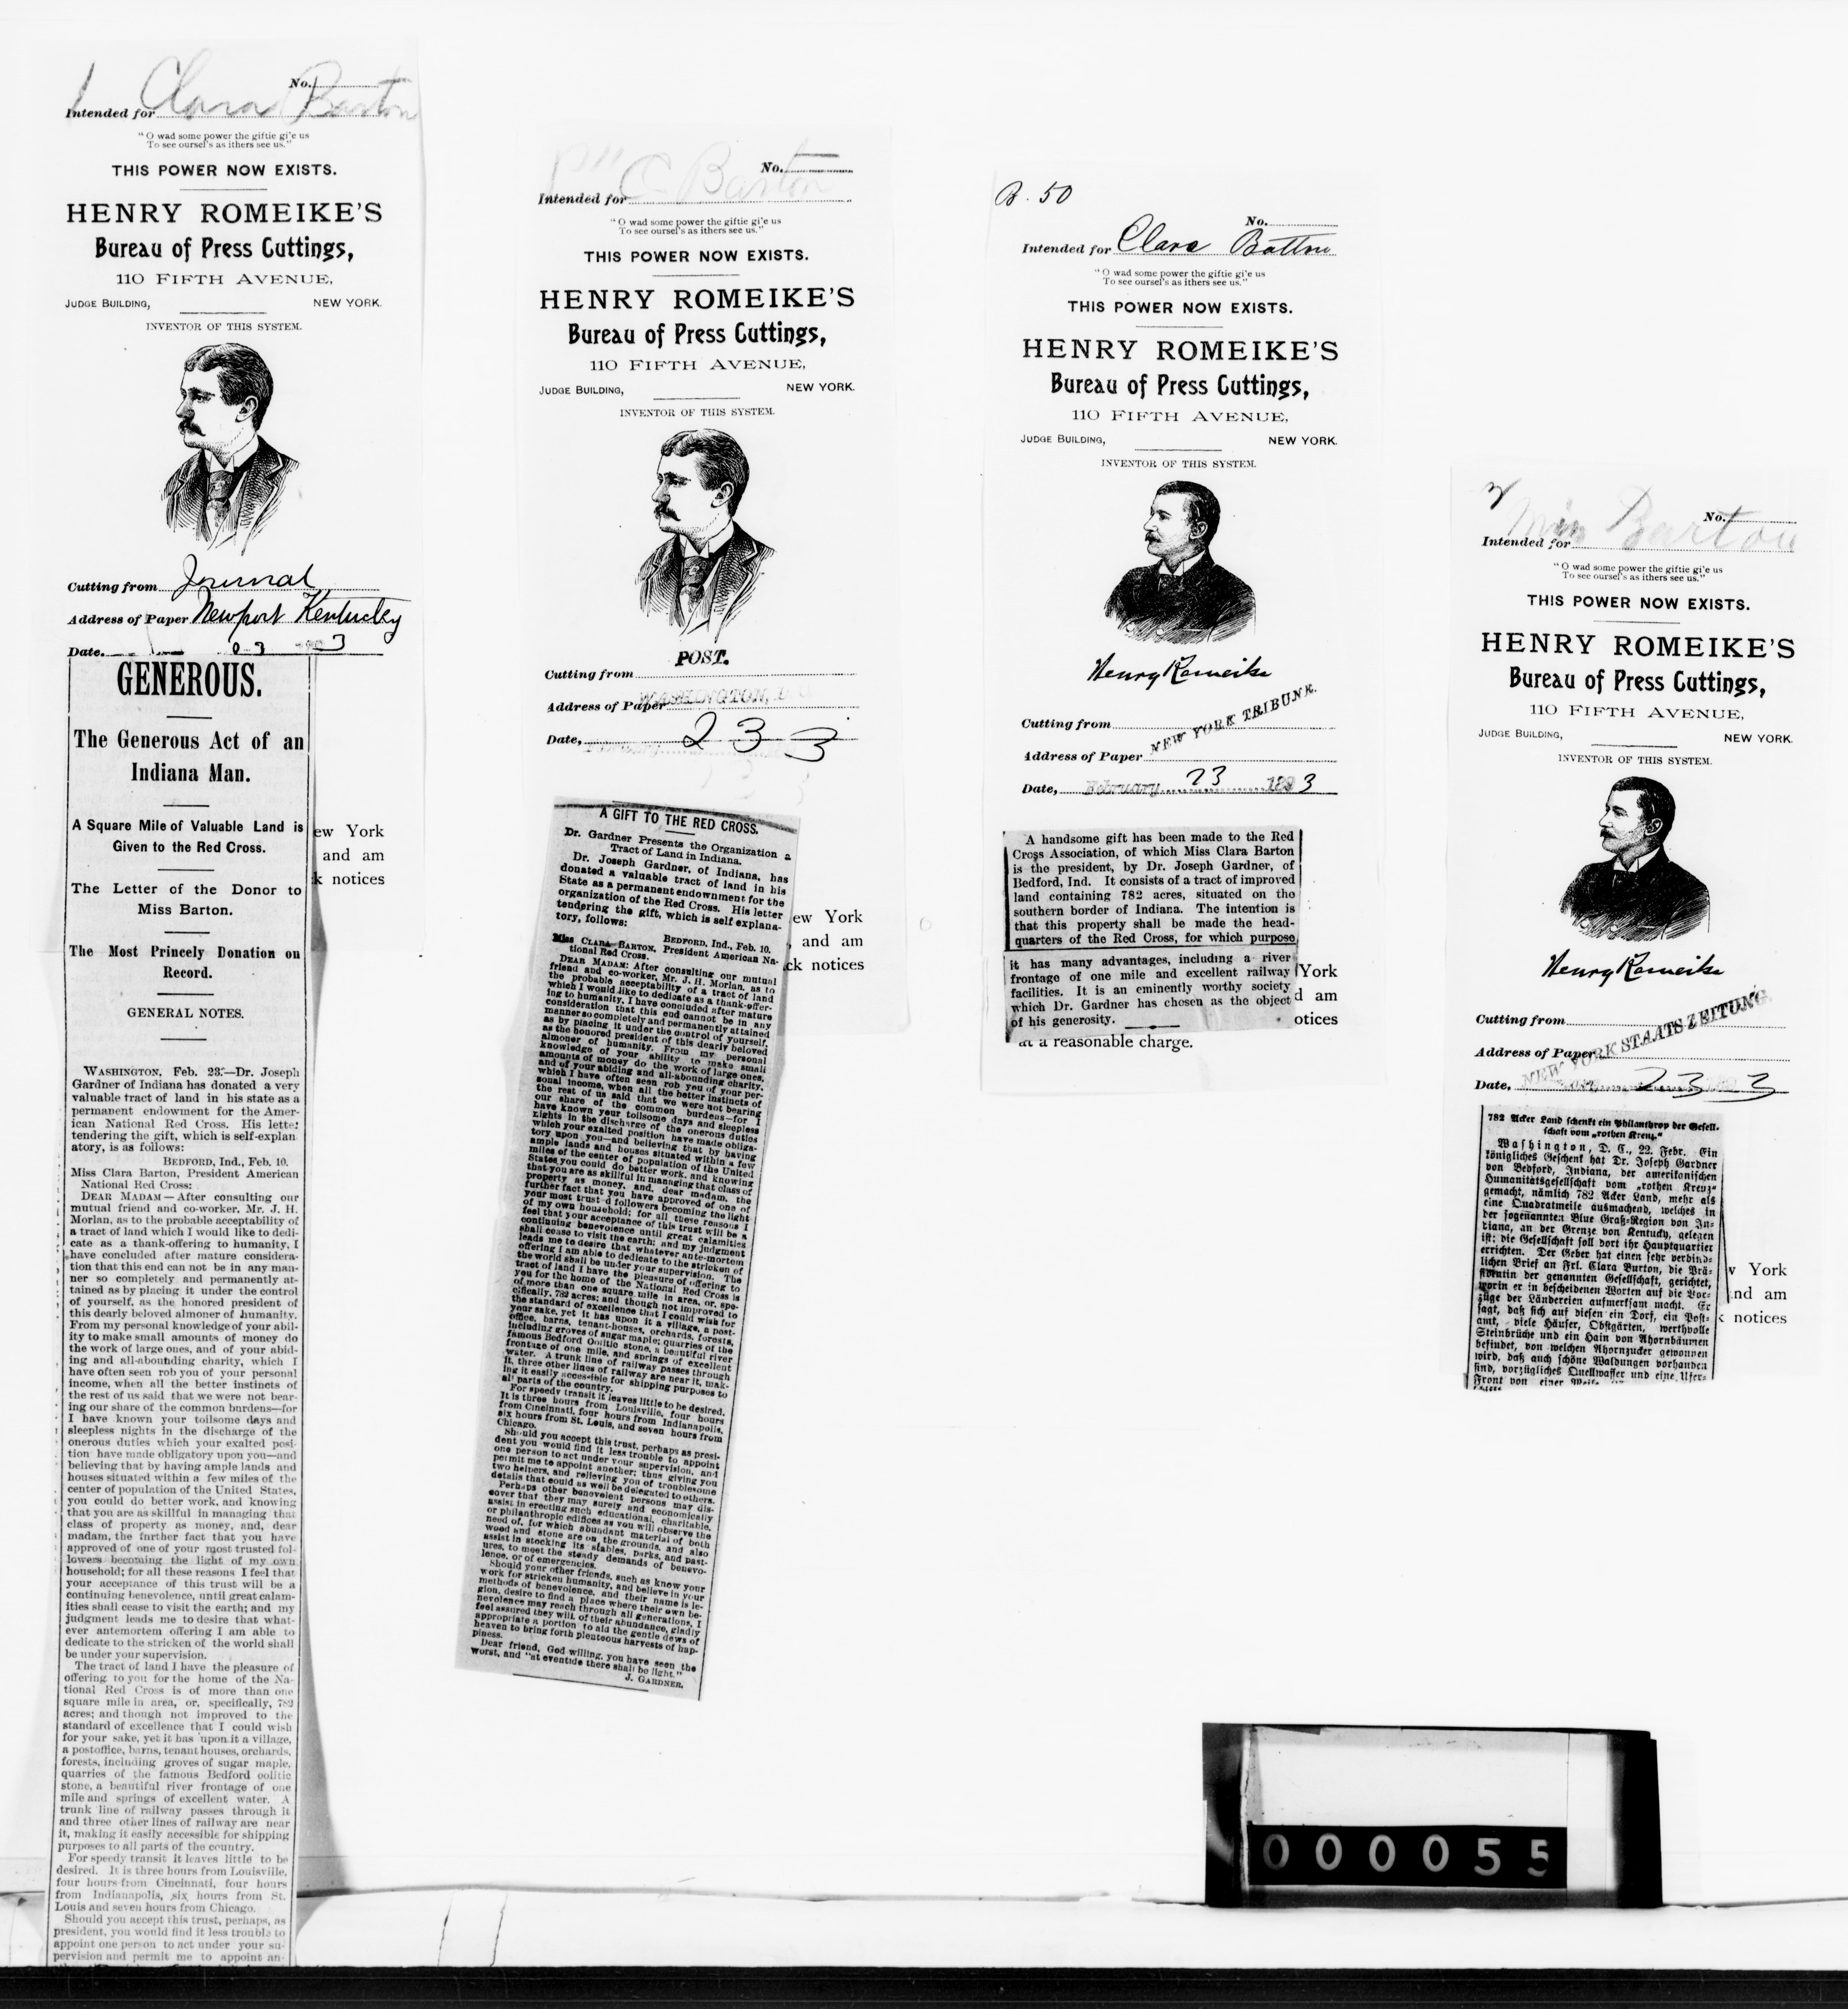 1 Clara Barton
No.
Intended for
"O wad some power the giftie gi'e us
To see oursel's as ithers see us."
THIS POWER NOW EXISTS.
HENRY ROMEIKE'S
Bureau of Press Cuttings,
110 FIFTH AVENUE,
JUDGE BUILDING, NEW YORK.
INVENTOR OF THIS SYSTEM.
Cutting from Journal
Address of Paper Newport Kentucky
Date. 3
GENEROUS.
The Generous Act of an
Indiana Man.
A Square Mile of Valuable Land is
Given to the Red Cross.
The Letter of the Donor to
Miss Barton.
The Most Princely Donation on
Record.
GENERAL NOTES.
WASHINGTON, Feb. 23.—Dr. Joseph
Gardner of Indiana has donated a very
valuable tract of land in his state as a
permanent endowment for the Amer-
ican National Red Cross. His letter
tendering the gift, which is self-explan
atory, is as follows:
BEDFORD, Ind., Feb. 10.
Miss Clara Barton, President American
National Red Cross:
DEAR MADAM—After consulting our
mutual friend and co-worker, Mr. J. H.
Morlan, as to the probable acceptability of
a tract of land which I would like to dedi-
cate as a thank-offering to humanity, I
have concluded after mature considera-
tion that this end can not be in any man-
ner so completely and permanently at-
tained as by placing it under the control
of yourself, as the honored president of
this dearly beloved almoner of humanity.
From my personal knowledge of your abil-
ity to make small amounts of money do
the work of large ones, and of your abid-
ing and all-abounding charity, which I
have often seen rob you of your personal
income, when all the better instincts of
the rest of us said that we were not bear-
ing our share of the common burdens—for
I have known your toilsome days and
sleepless nights in the discharge of the
onerous duties which your exalted posi-
tion have made obligatory upon you—and
believing that by having ample lands and
houses situated within a few miles of the
center of population of the United States,
you could do better work, and knowing
that you are as skillful in managing that
class of property as money, and, dear
madam, the further fact that you have
approved of one of your most trusted fol-
lowers becoming the light of my own
household; for all these reasons I feel that
your acceptance of this trust will be a
continuing benevolence, until great calam-
ities shall cease to visit the earth; and my
judgment leads me to desire that what-
ever antemortem offering I am able to
dedicate to the stricken of the world shall
be under your supervision.
The tract of land I have the pleasure of
offering to you for the home of the Na-
tional Red Cross is of more than one
square mile in area, or, specifically, 782
acres; and though not improved to the
standard of excellence that I could wish
for your sake, yet it has upon it a village,
a postoffice, barns, tenant houses, orchards,
forests, including groves of sugar maple,
quarries of the famous Bedford oolitic
stone, a beautiful river frontage of one
mile and springs of excellent water. A
trunk line of railway passes through it
and three other lines of railway are near
it, making it easily accessible for shipping
purposes to all parts of the country.
For speedy transit it leaves little to be
desired. It is three hours from Louisville,
four hours from Cincinnati, four hours
from Indianapolis, six hours from St.
Louis and seven hours from Chicago.
Should you accept this trust, perhaps, as
president, you would find it less trouble to
appoint one person to act under your su-
pervision and permit me to appoint an-
ew York
and am
k notices
C Barton
No.
Intended for
"O wad some power the giftie gi'e us
To see oursel's as ithers see us."
THIS POWER NOW EXISTS.
HENRY ROMEIKE'S
Bureau of Press Cuttings,
110 FIFTH AVENUE,
JUDGE BUILDING, NEW YORK.
INVENTOR OF THIS SYSTEM.
POST.
Cutting from
Address of Paper WASHINGTON,
Date, 23 3
A GIFT TO THE RED CROSS.
Dr. Gardner Presents the Organization a
Tract of Land in Indiana.
Dr. Joseph Gardner, of Indiana, has
donated a valuable tract of land in his
State as a permanent endownment for the
organization of the Red Cross. His letter
tendering the gift, which is self explana-
tory, follows:
BEDFORD, Ind., Feb. 10.
Miss CLARA BARTON, President American Na-
tional Red Cross.
DEAR MADAM: After consulting our mutual
friend and co-worker, Mr. J. H. Morlan, as to
the probable acceptability of a tract of land
which I would like to dedicate as a thank-offer-
ing to humanity, I have concluded after mature
consideration that this end cannot be in any
manner so completely and permanently attained
as by placing it under the control of yourself,
as the honored president of this dearly beloved
almoner of humanity. From my personal
knowledge of your ability to make small
amounts of money do the work of large ones,
and of your abiding and all-abounding charity,
which I have often seen rob you of your per-
sonal income, when all the better instincts of
the rest of us said that we were not bearing
our share of the common burdens—for I
have known your toilsome days and sleepless
nights in the discharge of the onerous duties
which your exalted position have made obliga-
tory upon you—and believing that by having
ample lands and houses situated within a few
miles of the center of population of the United
States you could do better work, and knowing
that you are as skillful in managing that class of
property as money, and, dear madam, the
further fact that you have approved of one of
your most trust d followers becoming the light
of my own household; for all these reasons I
feel that your acceptance of this trust will be a
continuing benevolence until great calamities
shall cease to visit the earth; and my judgment
leads me to desire that whatever ante-mortem
offering I am able to dedicate to the stricken of
the world shall be under your supervision. The
tract of land I have the pleasure of offering to
you for the home of the National Red Cross is
of more than one square mile in area, or, spe-
cifically, 782 acres; and though not improved to
the standard of excellence that I could wish for
your sake, yet it has upon it a village, a post-
office, barns, tenant-houses, orchards, forests,
including groves of sugar maple; quarries of the
famous Bedford Oolitic stone, a beautiful river
frontage of one mile, and springs of excellent
water. A trunk line of railway passes through
it, three other lines of railway are near it, mak-
ing it easily accessible for shipping purposes to
all parts of the country.
For speedy transit it leaves little to be desired.
It is three hours from Louisville, four hours
from Cincinnati, four hours from Indianapolis,
six hours from St. Louis, and seven hours from
Chicago.
Should you accept this trust, perhaps as presi-
dent you would find it less trouble to appoint
one person to act under your supervision, and
permit me to appoint another; thus giving you
two helpers, and relieving you of troublesome
details that could as well be delegated to others.
Perhaps other benevolent persons may dis-
cover that they may surely and economically
assist in erecting such educational, charitable,
or philanthropic edifices as you will observe the
need of, for which abundant material of both
wood and stone are on the grounds, and also
assist in stocking its stables, parks, and past-
ures, to meet the steady demands of benevo-
lence, or of emergencies.
Should your other friends, such as know your
work for stricken humanity, and believe in your
methods of benevolence, and their name is le-
gion, desire to find a place where their own be-
nevolence may reach through all generations, I
feel assured they will, of their abundance, gladly
appropriate a portion to aid the gentle dews of
heaven to bring forth plenteous harvests of hap-
piness.
Dear friend, God willing, you have seen the
worst, and "at eventide there shall be light."
J. GARDNER.
ew York
, and am
ck notices
B. 50
No.
Intended for Clara Batton
"O wad some power the giftie gi'e us
To see oursel's as ithers see us."
THIS POWER NOW EXISTS.
HENRY ROMEIKE'S
Bureau of Press Cuttings,
110 FIFTH AVENUE,
JUDGE BUILDING, NEW YORK.
INVENTOR OF THIS SYSTEM.
Henry Romeike
Cutting from NEW YORK TRIBUNE.
Address of Paper
Date, February 23 1893
A handsome gift has been made to the Red
Cross Association, of which Miss Clara Barton
is the president, by Dr. Joseph Gardner, of
Bedford, Ind. It consists of a tract of improved
land containing 782 acres, situated on the
southern border of Indiana. The intention is
that this property shall be made the head-
quarters of the Red Cross, for which purpose
it has many advantages, including a river
frontage of one mile and excellent railway
facilities. It is an eminently worthy society
which Dr. Gardner has chosen as the object
of his generosity.
York
d am
otices
at a reasonable charge.
Miss Barton
No.
Intended for
"O wad some power the giftie gi'e us
To see oursel's as ithers see us."
THIS POWER NOW EXISTS.
HENRY ROMEIKE'S
Bureau of Press Cuttings,
110 FIFTH AVENUE,
JUDGE BUILDING, NEW YORK.
INVENTOR OF THIS SYSTEM.
Henry Romeike
Cutting from
Address of Paper NEW YORK STAATS ZEITUNG.
Date, 23 3
782 Acker Land schenkt ein Philanthrop der Gesell-
schaft vom „rothen Kreuz."
Washington, D. C., 22. Febr. Ein
königliches Geschenk hat Dr. Joseph Gardner
von Bedford, Indiana, der amerikanischen
Humanitätsgesellschaft vom „rothen Kreuz"
gemacht, nämlich 782 Acker Land, mehr als
eine Quadratmeile ausmachend, welches in
der sogenannten Blue Graß-Region von In-
diana, an der Grenze von Kentucky, gelegen
ist; die Gesellschaft soll dort ihr Hauptquartier
errichten. Der Geber hat einen sehr verbind-
lichen Brief an Frl. Clara Burton, die Prä-
sidentin der genannten Gesellschaft, gerichtet,
worin er in bescheidenen Worten auf die Vor-
züge der Ländereien aufmerksam macht. Er
sagt, daß sich auf diesen ein Dorf, ein Post-
amt, viele Häuser, Obstgärten, werthvolle
Steinbrüche und ein Hain von Ahornbäumen
befindet, von welchen Ahornzucker gewonnen
wird, daß auch schöne Waldungen vorhanden
sind, vorzügliches Quellwasser und eine Ufer-
Front von einer
v York
nd am
k notices
000055